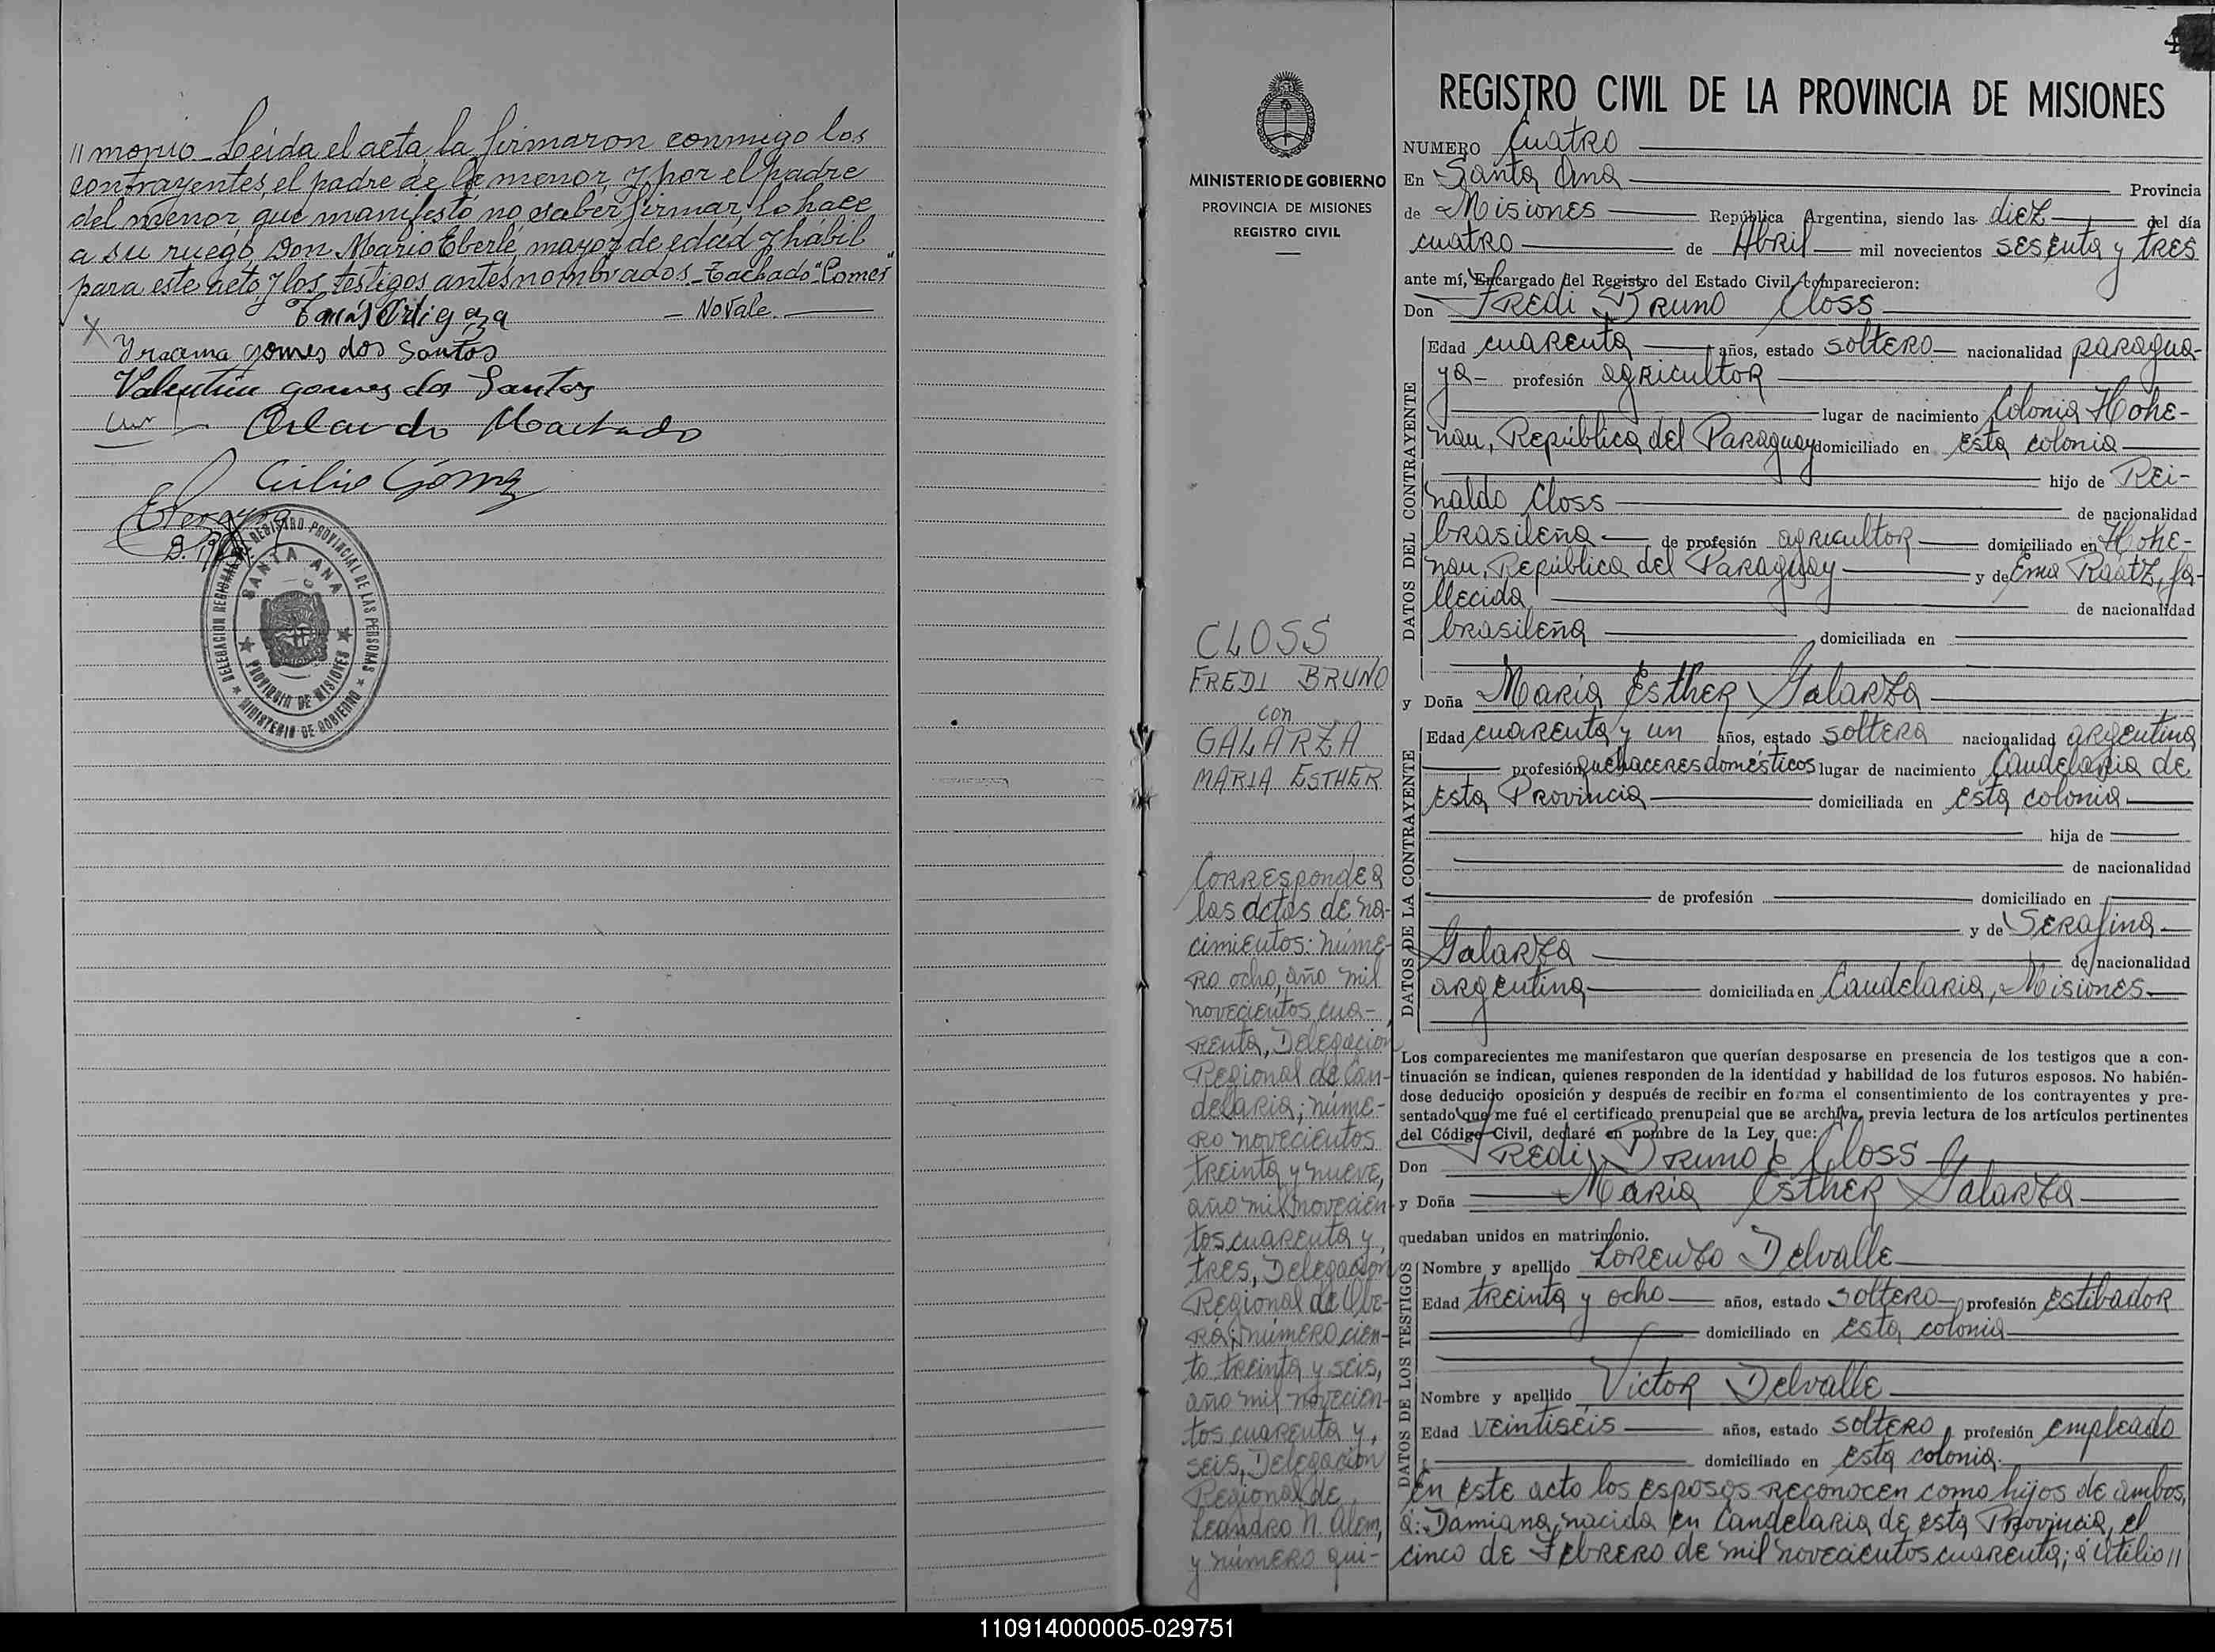 // monio - Leída el acta, la firmaron conmigo los
contrayentes, el padre de la menor, y por el padre
del menor, que manifestó no saber firmar, lo hace
a su ruego, Don Mario Eberle, mayor de edad y hábil
para este acto y los testigos antes nombrados - Tachado "Pomer"
- No Vale. -
Tomas Ortigoza
X
Yracema gomes dos Santos
Valentin gomes dos Santos
Orlando Machado
Cirilio Gómez
DELEGACION REGIONAL DE REGISTRO PROVINCIAL DE LAS PERSONAS
SANTA ANA
PROVINCIA DE MISIONES
MINISTERIO DE GOBIERNO
MINISTERIO DE GOBIERNO
PROVINCIA DE MISIONES
REGISTRO CIVIL
CLOSS
FREDI BRUNO
con
GALARZA
MARIA ESTHER
Corresponde a
las actas de na-
cimientos: núme-
ro ocho, año mil
novecientos cua-
renta, Delegación
Regional de Can-
delaria; núme-
ro novecientos
treinta y nueve,
año mil novecien-
tos cuarenta y
tres, Delegación
Regional de Obe-
rá; número cien-
to treinta y seis,
año mil novecien-
tos cuarenta y
seis, Delegación
Regional de
Leandro N. Alem,
y número qui-
REGISTRO CIVIL DE LA PROVINCIA DE MISIONES
NUMERO Cuatro
En Santa Ana Provincia
de Misiones República Argentina, siendo las diez del día
cuatro de Abril mil novecientos sesenta y tres
ante mí, Encargado del Registro del Estado Civil, comparecieron:
Don Fredi Bruno Closs
DATOS DEL CONTRAYENTE
Edad cuarenta años, estado soltero nacionalidad paragua-
ya- profesión agricultor
lugar de nacimiento Colonia Hohe-
nau, República del Paraguay domiciliado en esta colonia
hijo de Rei-
naldo Closs de nacionalidad
brasileña de profesión agricultor domiciliado en Hohe-
nau, República del Paraguay y de Ema Raatz, fa-
llecida de nacionalidad
brasileña domiciliada en
y Doña María Esther Galarza
DATOS DE LA CONTRAYENTE
Edad cuarenta y un años, estado soltera nacionalidad argentina
profesión quehaceres domésticos lugar de nacimiento Candelaria de
esta Provincia domiciliada en esta colonia
hija de
de nacionalidad
de profesión domiciliado en
y de Serafina
Galarza de nacionalidad
argentina domiciliada en Candelaria, Misiones
Los comparecientes me manifestaron que querían desposarse en presencia de los testigos que a con-
tinuación se indican, quienes responden de la identidad y habilidad de los futuros esposos. No habién-
dose deducido oposición y después de recibir en forma el consentimiento de los contrayentes y pre-
sentado que me fué el certificado prenupcial que se archiva, previa lectura de los artículos pertinentes
del Código Civil, declaré en nombre de la Ley, que:
Don Fredi Bruno Closs
y Doña María Esther Galarza
quedaban unidos en matrimonio.
DATOS DE LOS TESTIGOS
Nombre y apellido Lorenzo Delvalle
Edad treinta y ocho años, estado soltero profesión estibador
domiciliado en esta colonia
Nombre y apellido Victor Delvalle
Edad veintiseis años, estado soltero profesión empleado
domiciliado en esta colonia.
En este acto los esposos reconocen como hijos de ambos,
a: Damiana, nacida en Candelaria de esta Provincia, el
cinco de Febrero de mil novecientos cuarenta; a Atilio //
110914000005-029751